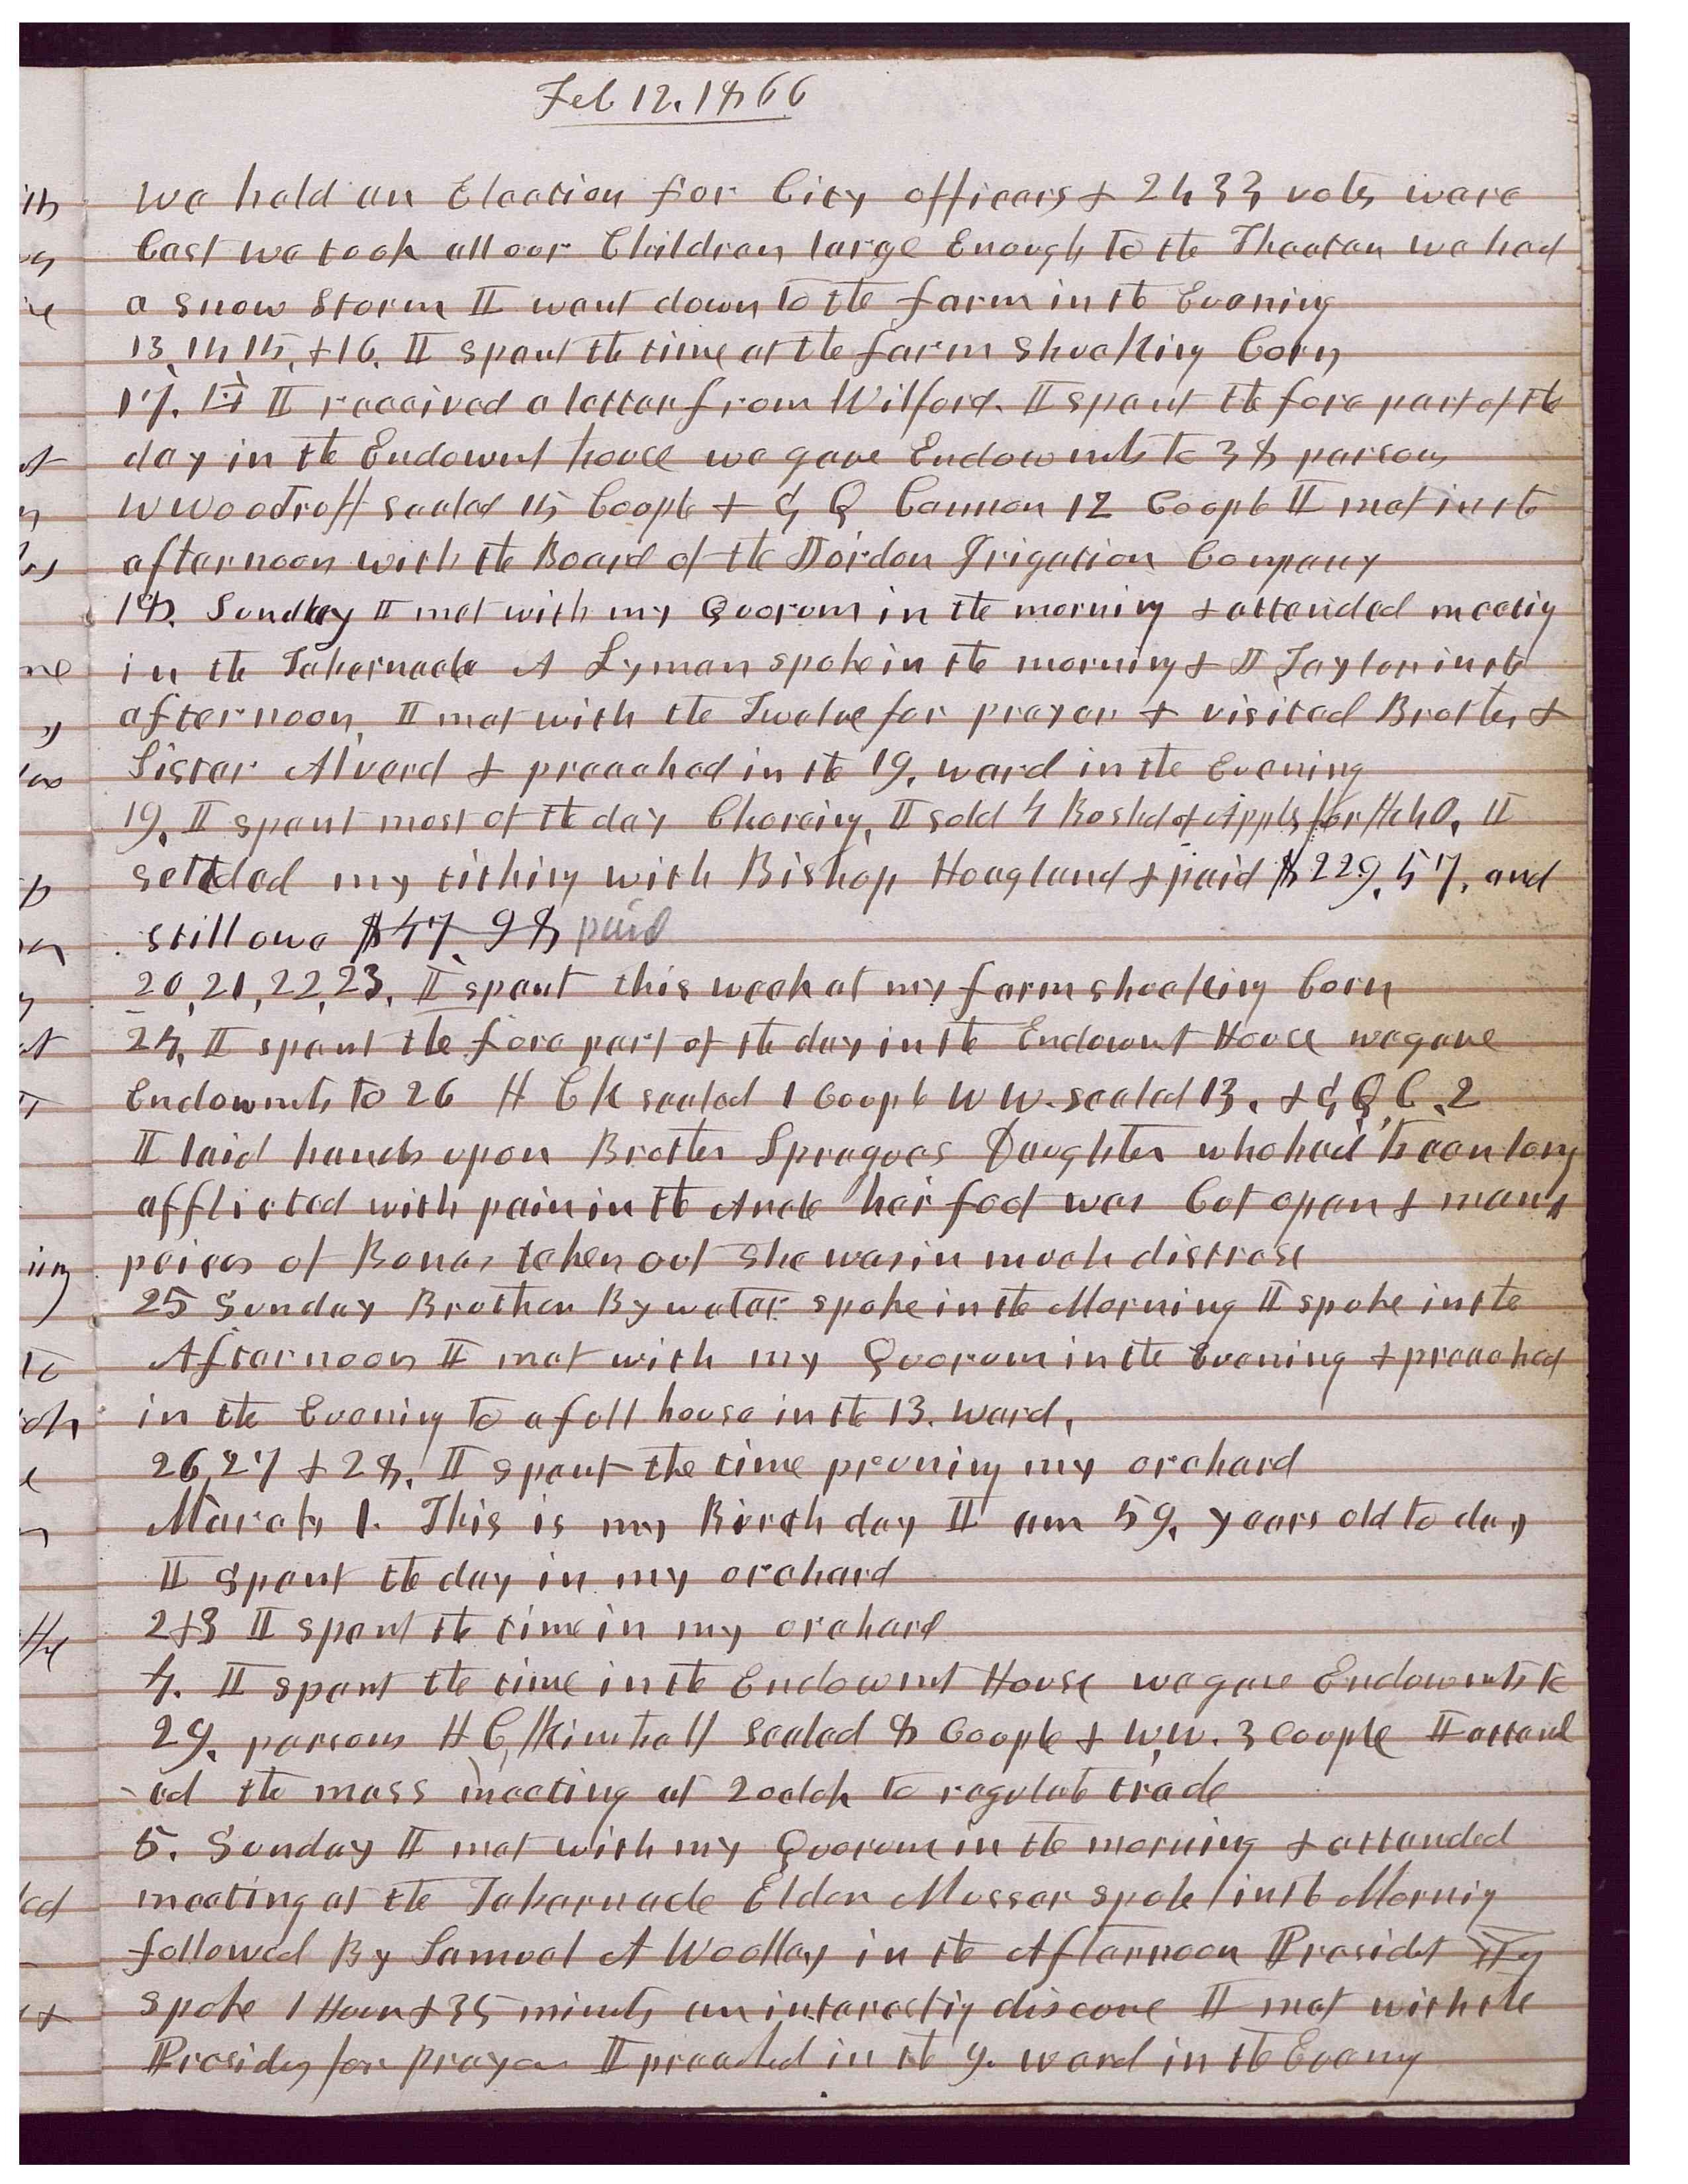 Feb 12. 1866
We held an Election for City officers & 2433 vots ware
Cast we took all our Children large Enough to the Theatan we had
a snow Storm I went down to the farm in the Evening
13, 14 15, & 16. I spent the time at the farm Shucking Corn
17. I received a letter from Wilford. I spent the fore part of the
day in the Endowmt house we gave Endowmts to 38 persons
W Woodruff sealed 15 Coople & G Q Cannon 12 Coople I met in the
afternoon with the Board of the Jordon Irigation Company
18. Sunday I met with my Quorum in the morning & attended meetig
in the Tabernacle A Lyman spoke in the morning & J Taylor in the
afternoon, I met with the Twelve for prayer & visited Brother &
Sister Alvord & preached in the 19. ward in the Evening
19. I spent most of the day Choreing, I sold 4 Bushel of Apples for I
settled my tithing with Bishop Hoagland & paid $229.57. and
still owe $47.98 paid
20, 21, 22, 23, I spent this week at my farm shucking Corn
24, I spent the fore part of the day in the Endowmt House we gave
Endowmts to 26 H C K sealed 1 Coople W W. sealed 13. & G Q C. 2
I laid hands upon Brother Spragues Daughter who had been long
afflicted with pain in the Ancle her foot was Cut open & many
peices of Bones taken out She was in much distress
25 Sunday Brother Bywater spoke in the Morning I spoke in the
Afternoon I met with my Quorum in the Evening & preached
in the Evening to a full house in the 13. ward,
26, 27 & 28. I spent the time pruning my orchard
March 1. This is my Birth day I am 59. years old to day
I Spent the day in my orchard
2 & 3 I spent the time in my orchard
4. I spent the time in the Endowmt House we gave Endowmts to
29. persons H C, Kimball Sealed 8 Coople & W, W. 3 Coople I attend
-ed the mass meeting at 2 oclok to regulate trade
5. Sunday I met with my Quorum in the morning & attended
meeting at the Tabernacle Elder Musser spoke in the Mornig
followed By Samuel A Woolley in the Afternoon Presidet Yg
spoke 1 Hour & 35 minuts an interestig discorse I met with the
Presidey for Prayer I preached in the 9. ward in the Eveng